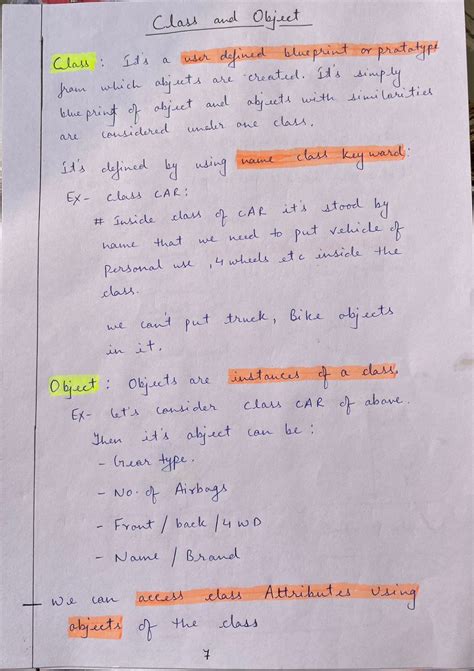 Class and Object
Class : It's a user defined blueprint or prototype
from which objects are created. It's simply
blueprint of object and objects with similarities
are considered under one class.
It's defined by using name class keyward:
Ex- Class CAR:
# Inside class of CAR it's stood by
name that we need to put vehicle of
personal use, 4 wheels etc inside the
class.
we can't put truck, Bike objects
in it.
Object : Objects are instances of a class.
Ex- let's consider class CAR of above.
Then it's object can be :
- Gear type.
- No. of Airbags
- Front / back / 4 WD
- Name / Brand
We can access class Attributes using
objects of the class
7